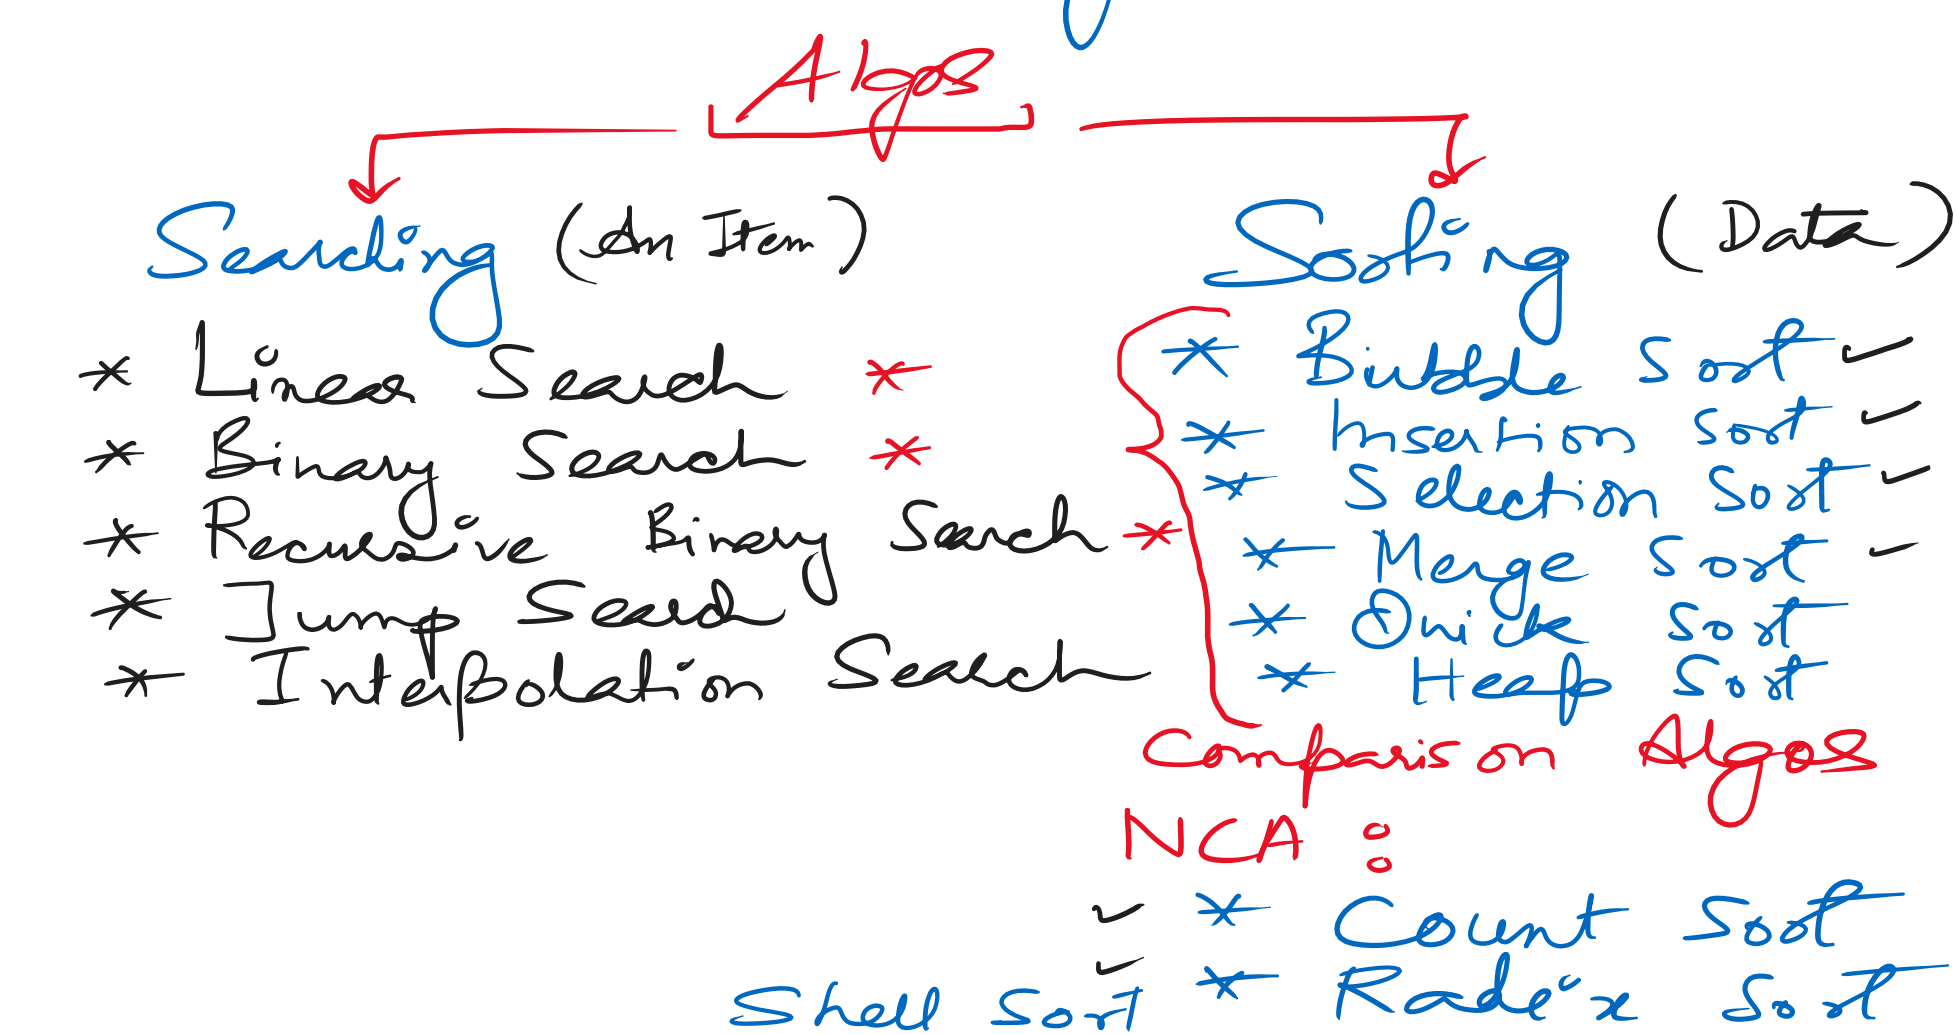 Algos
Searching (An Item)
* Linear Search *
* Binary Search *
* Recursive Binary Search *
* Jump Search
* Interpolation Search
Sorting (Data)
* Bubble Sort ✓
* Insertion Sort ✓
* Selection Sort ✓
* Merge Sort ✓
* Quick Sort
* Heap Sort
Comparison Algos
NCA :
✓ * Count Sort
✓ * Radix Sort
Shell Sort